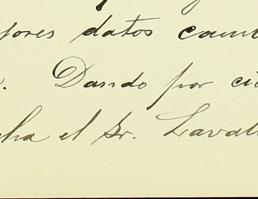 pores datos cam
. Dando por ci
ha el Sr. Laval